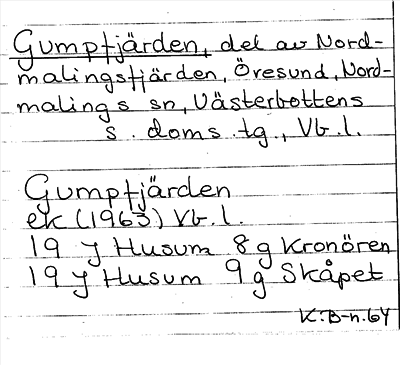 Gumpfjärden, del av Nord-
malingsfjärden, Öresund, Nord-
malings sn, Västerbottens
s. doms. tg., Vb. l.
Gumpfjärden
ek (1963) Vb. l.
19 J Husum 8 g Kronören
19 J Husum 9 g Skåpet
K. B-n. 64